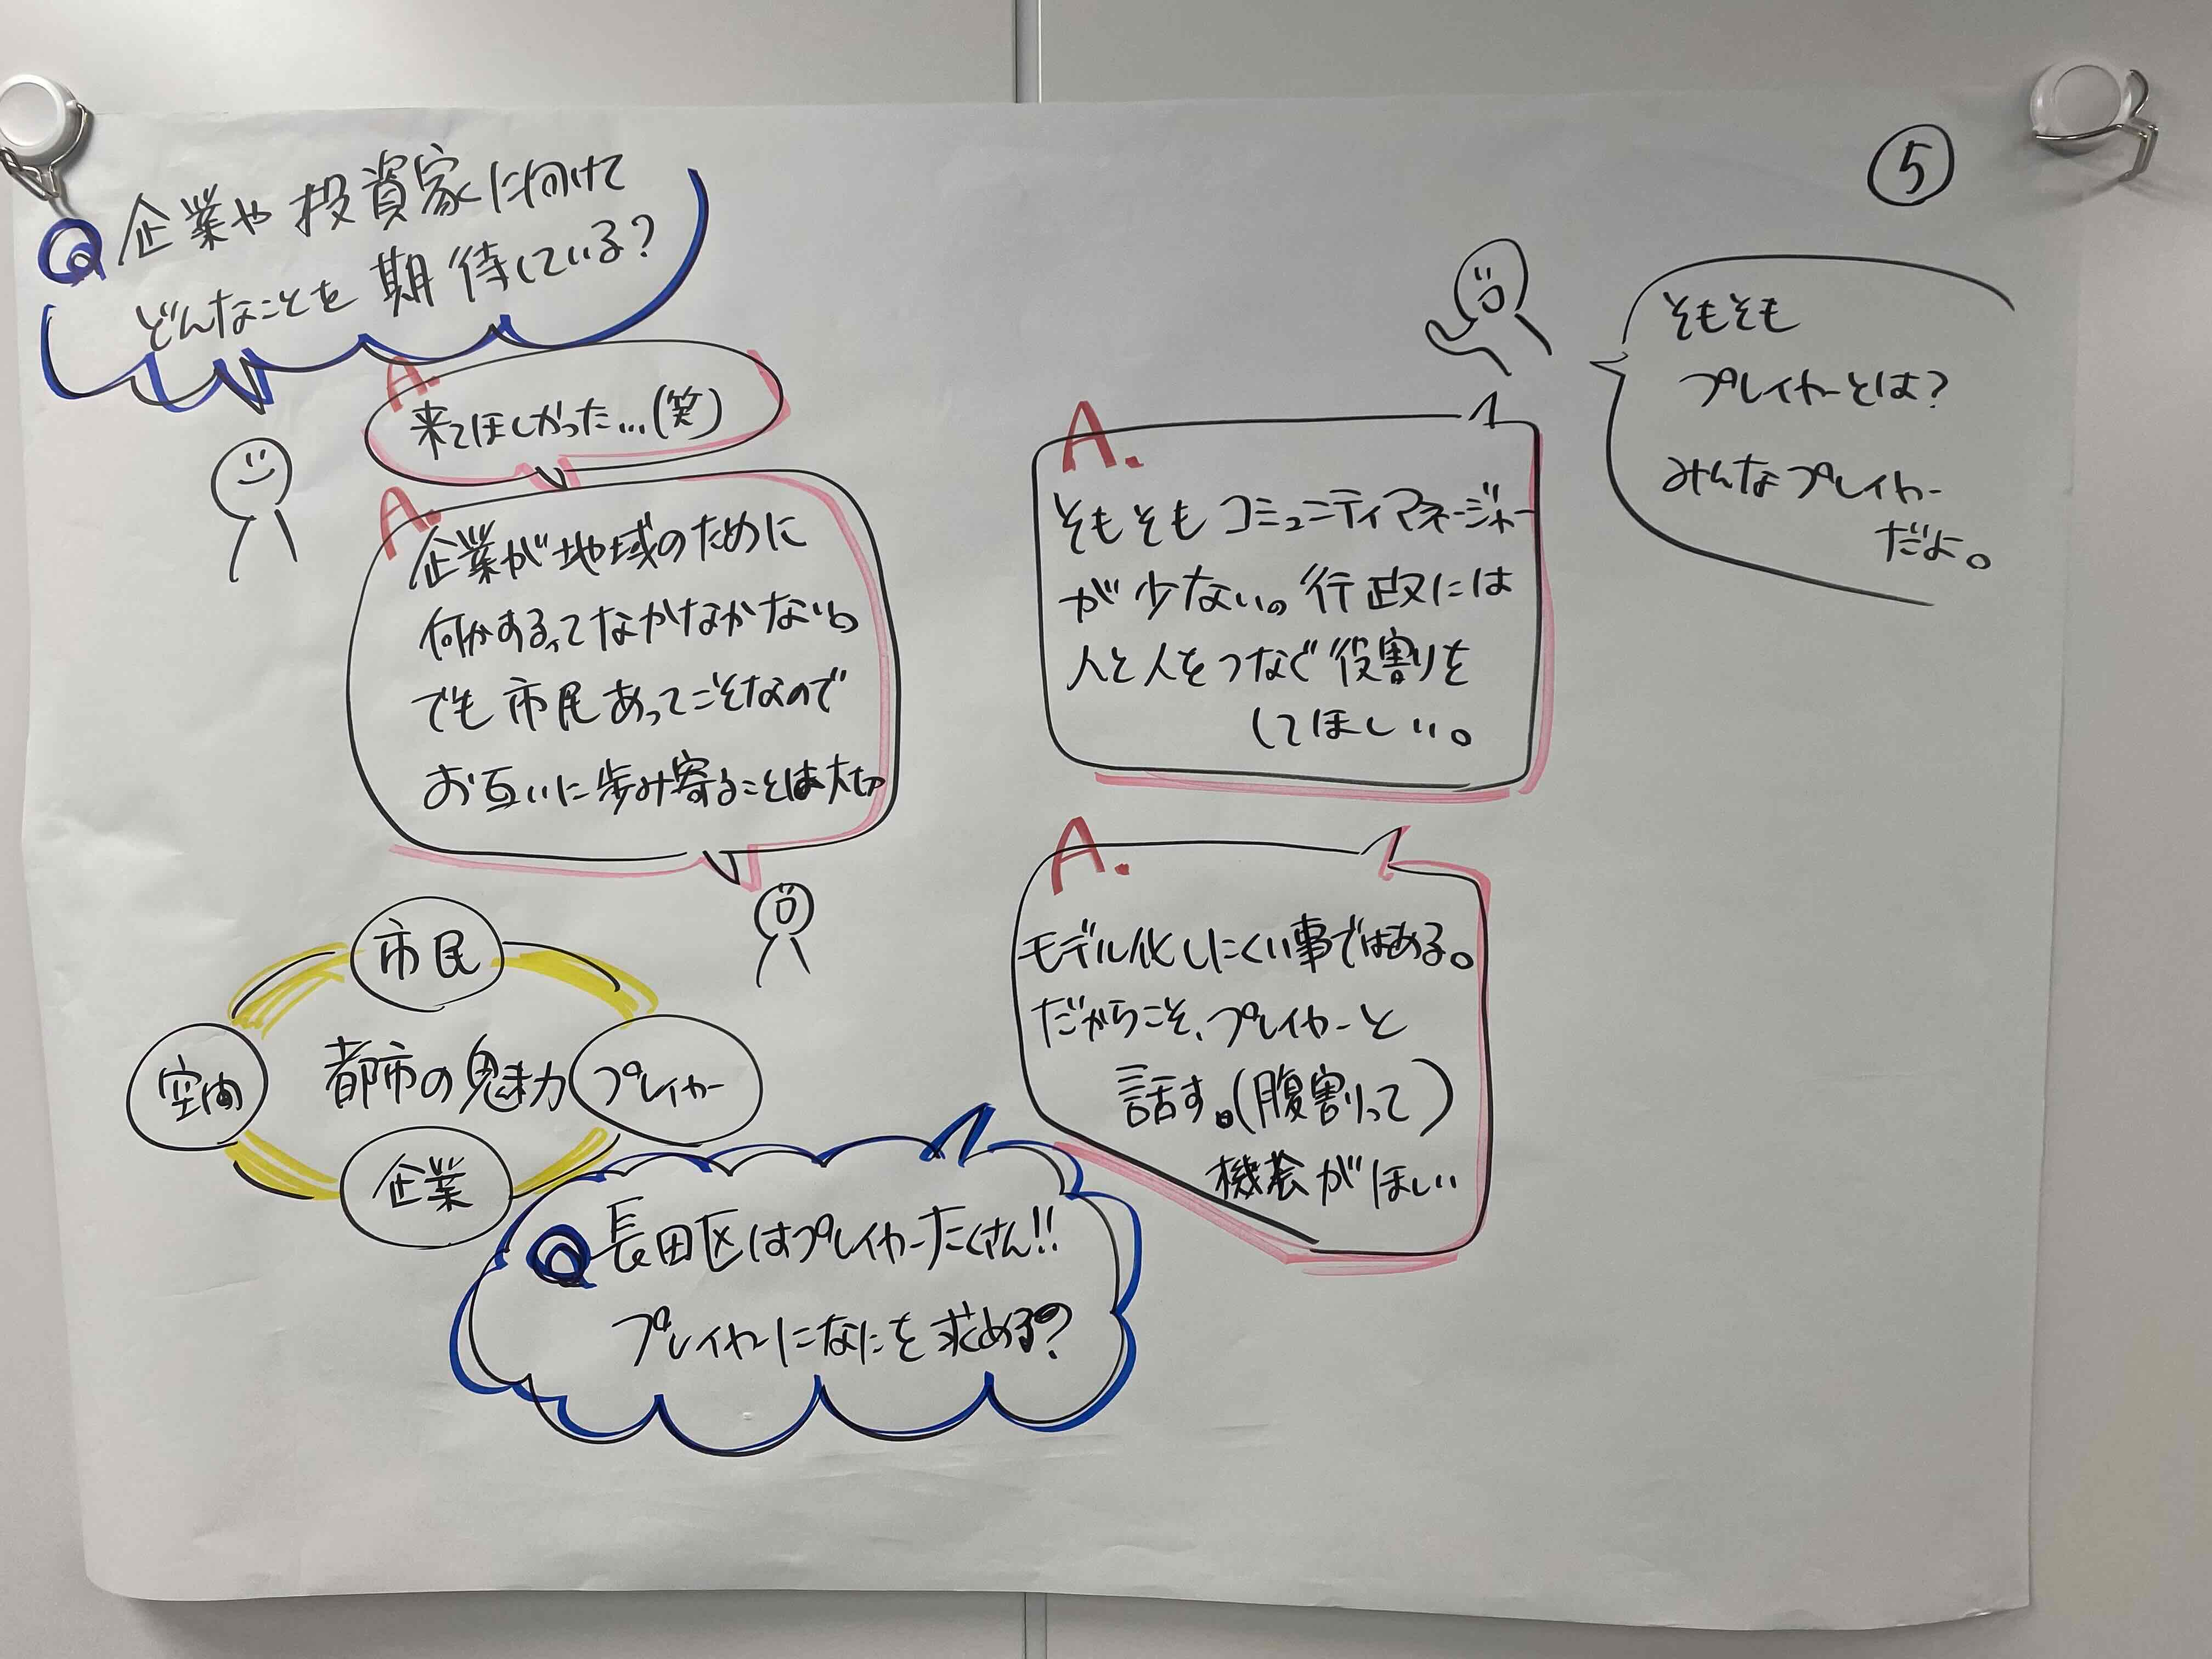 ⑤
Q 企業や投資家に向けて
どんなことを期待している?
A.
来てほしかった…(笑)
A.
企業が地域のために
何かするってなかなかない。
でも市民あってこそなので
お互いに歩み寄ることは大切
市民
空間
都市の魅力
プレイヤー
企業
Q 長田区はプレイヤーたくさん!!
プレイヤーになにを求める?
A.
モデル化しにくい事ではある。
だからこそ、プレイヤーと
話す。(腹割って)
機会がほしい
A.
そもそもコミュニティマネージャー
が少ない。行政には
人と人をつなぐ役割りを
してほしい。
そもそも
プレイヤーとは?
みんなプレイヤー
だよ。